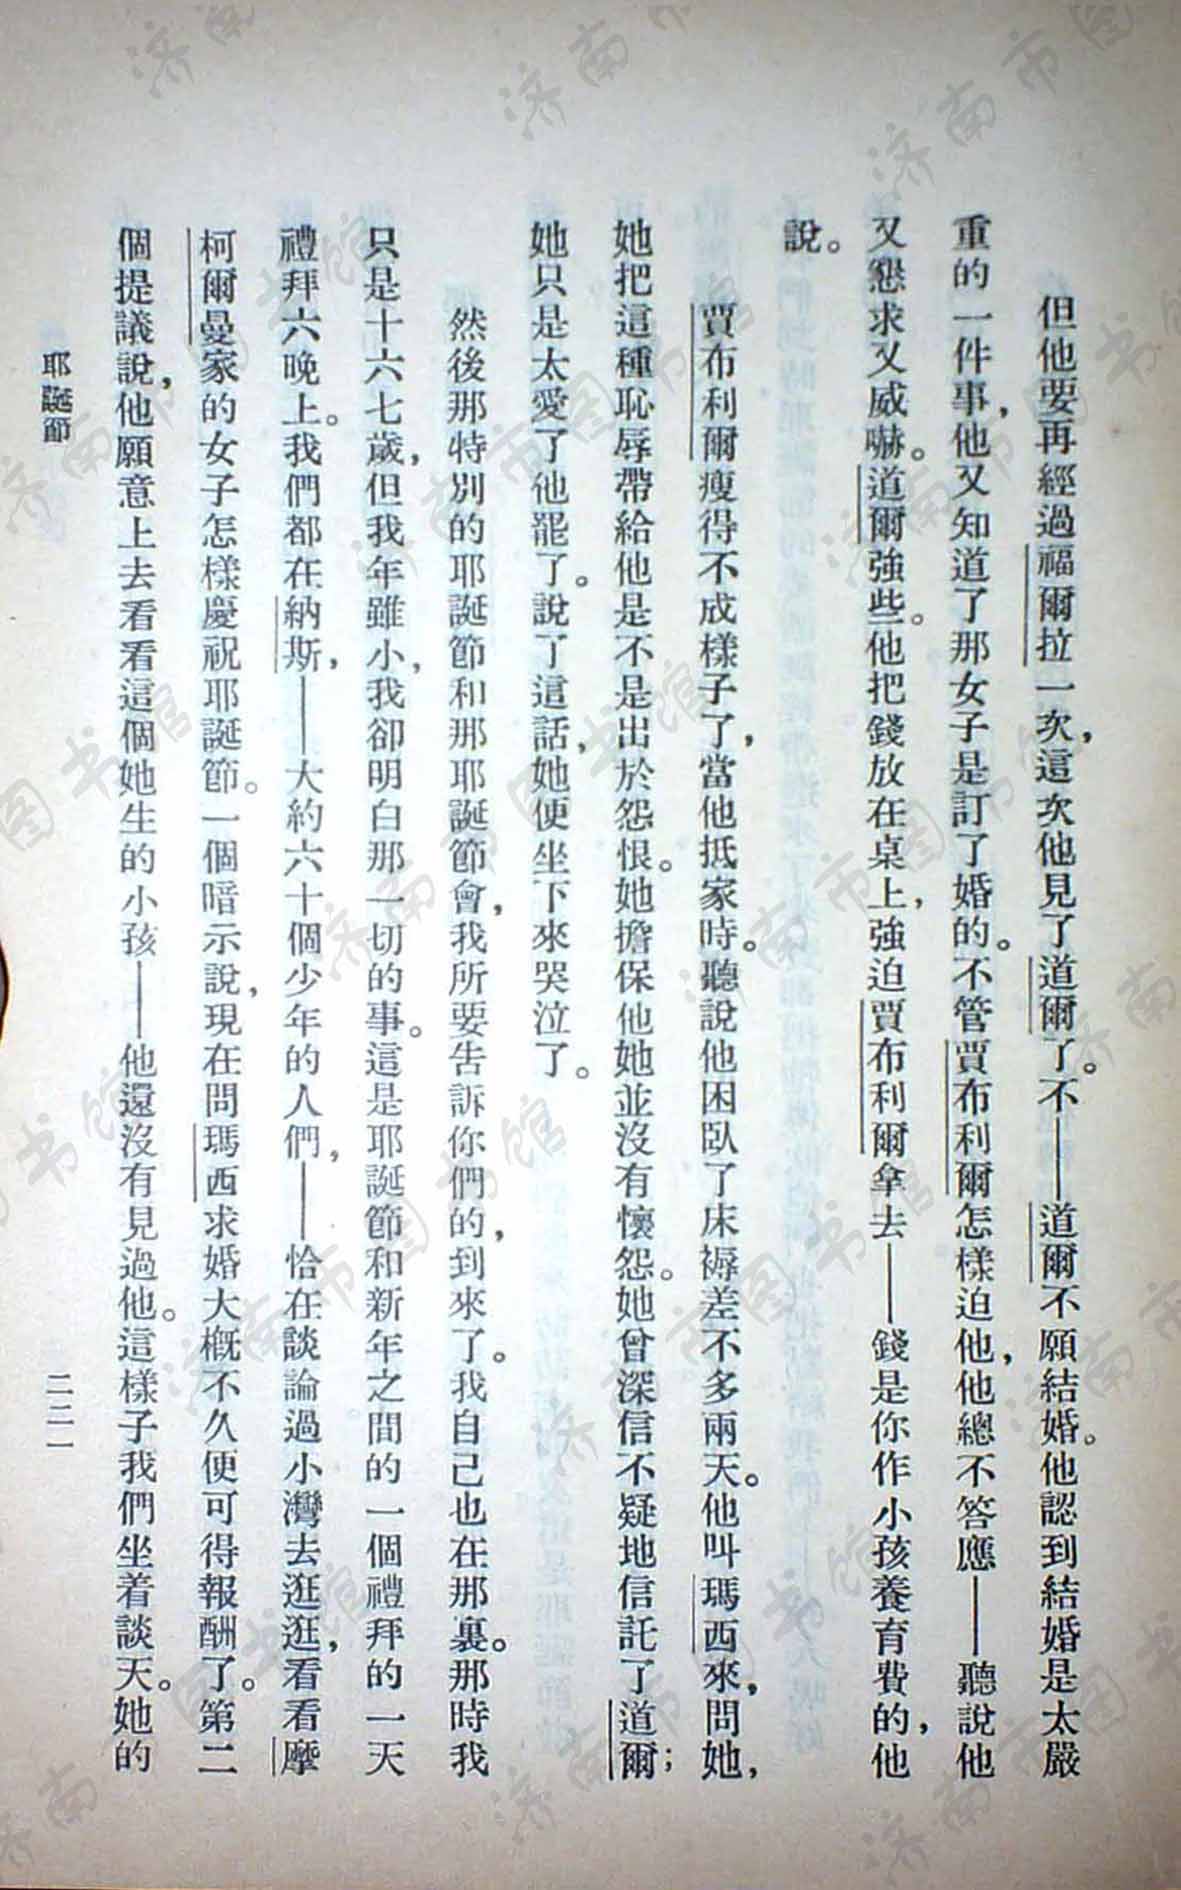 但他要再經過福爾拉一次，這次他見了道爾了。不——道爾不願結婚。他認到結婚是太嚴
重的一件事，他又知道了那女子是訂了婚的。不管賈布利爾怎樣迫他，他總不答應——聽說他
又懇求又威嚇。道爾強些。他把錢放在桌上，強迫賈布利爾拿去——錢是你作小孩養育費的，他
說。
賈布利爾瘦得不成樣子了，當他抵家時。聽說他困臥了床褥差不多兩天。他叫瑪西來，問她，
她把這種恥辱帶給他是不是出於怨恨。她擔保他她並沒有懷怨。她曾深信不疑地信託了道爾；
她只是太愛了他罷了。說了這話，她便坐下來哭泣了。
然後那特別的耶誕節和那耶誕節會，我所要告訴你們的，到來了。我自己也在那裏。那時我
只是十六七歲，但我年雖小，我卻明白那一切的事。這是耶誕節和新年之間的一個禮拜的一天
禮拜六晚上。我們都在納斯，——大約六十個少年的人們，——恰在談論過小灣去逛逛，看看摩
柯爾曼家的女子怎樣慶祝耶誕節。一個暗示說，現在問瑪西求婚大概不久便可得報酬了。第二
個提議說，他願意上去看看這個她生的小孩——他還沒有見過他。這樣子我們坐着談天。她的
耶誕節
二二一
济南市图书馆